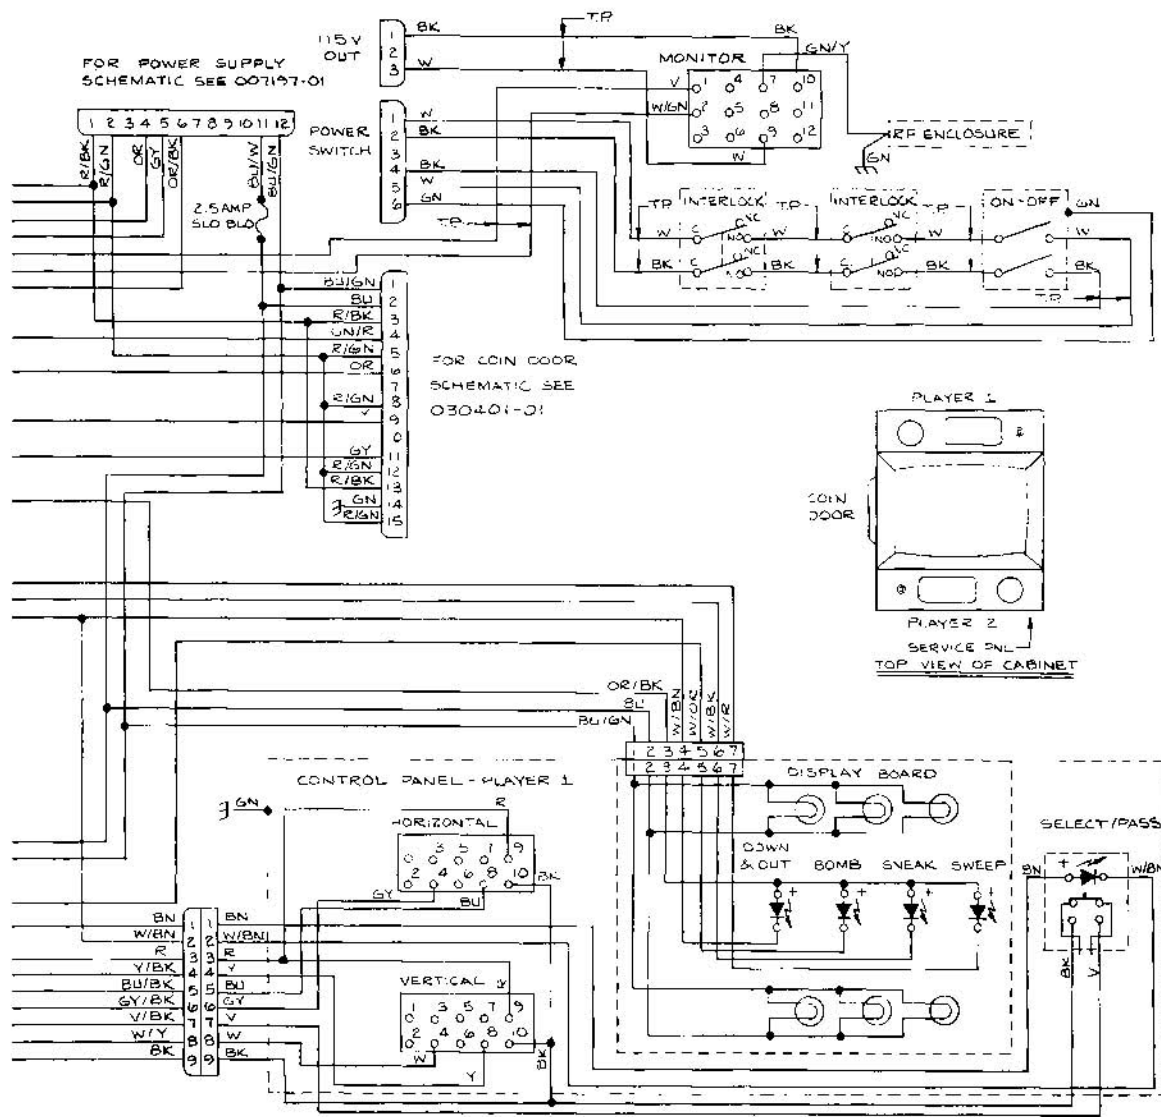 FOR POWER SUPPLY
SCHEMATIC SEE 007197-01
1 2 3 4 5 6 7 8 9 10 11 12
R/BK
R/GN
OR
GY
OR/BK
BU/W
BU/GN
2.5AMP
SLO BLO
115V
OUT
1
2
3
BK
W
T.P.
BK
GN/Y
MONITOR
V
W/GN
1 4 7 10
2 5 8 11
3 6 9 12
W
RF ENCLOSURE
GN
POWER
SWITCH
1
2
3
4
5
6
W
BK
BK
W
GN
T.P.
T.P. INTERLOCK T.P. INTERLOCK T.P. ON-OFF GN
W C NC NO W C NC NO W W
BK C NC NO BK C NC NO BK BK
T.P.
BU/GN 1
BU 2
R/BK 3
GN/R 4
R/GN 5
OR 6
7
R/GN 8
V 9
0
GY 11
R/GN 12
R/BK 13
GN 14
R/GN 15
FOR COIN DOOR
SCHEMATIC SEE
030401-01
PLAYER 1
COIN
DOOR
PLAYER 2
SERVICE PNL
TOP VIEW OF CABINET
OR/BK
BU
BU/GN
W/BN
W/OR
W/BK
W/R
1 2 3 4 5 6 7
1 2 3 4 5 6 7
DISPLAY BOARD
DOWN
& OUT BOMB SNEAK SWEEP
+ + + +
CONTROL PANEL - PLAYER 1
GN
R
HORIZONTAL
3 5 7 9
2 4 6 8 10
BK
GY
BU
BN 1 1 BN
W/BN 2 2 W/BN
R 3 3 R
Y/BK 4 4 Y
BU/BK 5 5 BU
GY/BK 6 6 GY
V/BK 7 7 V
W/Y 8 8 W
BK 9 9 BK
VERTICAL
R
1 3 5 7 9
2 4 6 8 10
W
Y
BK
SELECT/PASS
BN
+
W/BN
BK
V